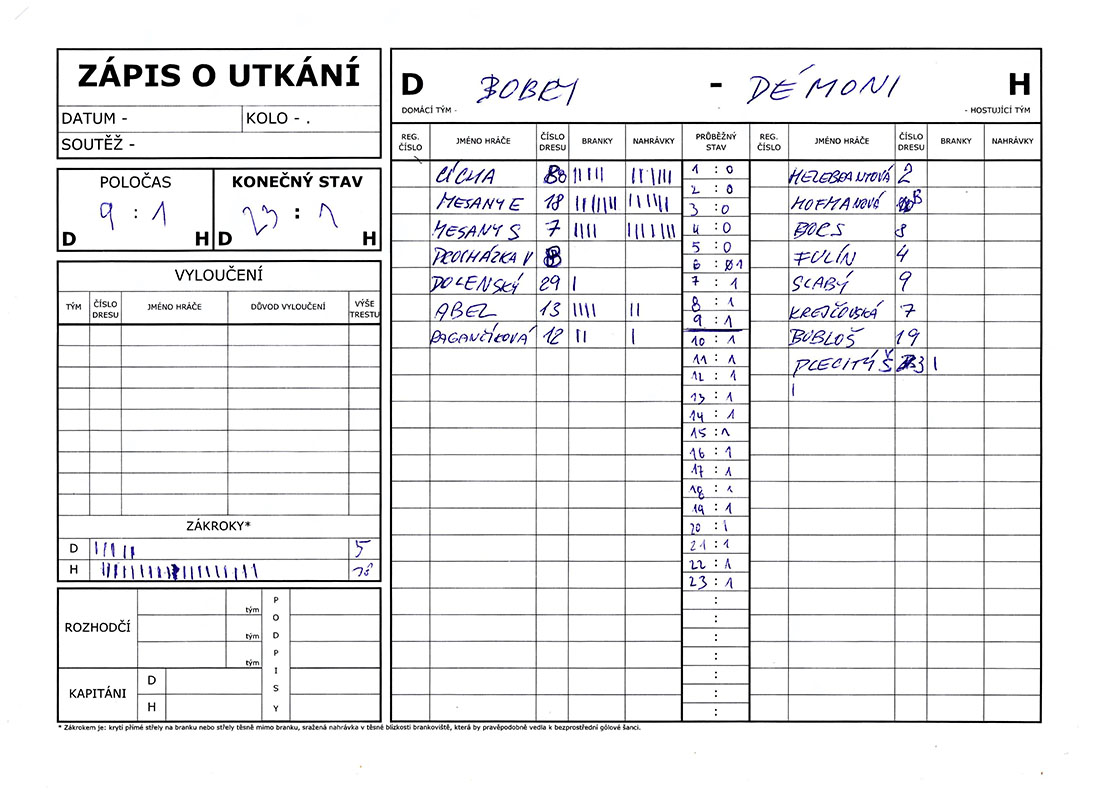 ZÁPIS O UTKÁNÍ
DATUM - KOLO - .
SOUTĚŽ -
POLOČAS KONEČNÝ STAV
9 : 1 23 : 1
D H D H
VYLOUČENÍ
TÝM ČÍSLO DRESU JMÉNO HRÁČE DŮVOD VYLOUČENÍ VÝŠE TRESTU
ZÁKROKY*
D 5
H 18
ROZHODČÍ tým
tým
tým
PODPISY
KAPITÁNI D
H
D BOBRY - DÉMONI H
DOMÁCÍ TÝM - - HOSTUJÍCÍ TÝM
REG. ČÍSLO JMÉNO HRÁČE ČÍSLO DRESU BRANKY NAHRÁVKY PRŮBĚŽNÝ STAV REG. ČÍSLO JMÉNO HRÁČE ČÍSLO DRESU BRANKY NAHRÁVKY
CÍCHA IIIII
MESANY E 18
MESANY S 7 IIII
PROCHÁZKA V
DOLENSKÝ 29 I
ABEL 13 IIII II
PAGANČÍKOVÁ 12 II I
1 : 0
2 : 0
3 : 0
4 : 0
5 : 0
6 : 1
7 : 1
8 : 1
9 : 1
10 : 1
11 : 1
12 : 1
13 : 1
14 : 1
15 : 1
16 : 1
17 : 1
18 : 1
19 : 1
20 : 1
21 : 1
22 : 1
23 : 1
:
:
:
:
:
:
:
HELEBRANTOVÁ 2
HOFMANOVÁ
BORS 8
FULÍN 4
SLABÝ 9
KREJČOVSKÁ 7
BUBLOŠ 19
PLECITÝ Š I
I
* Zákrokem je: krytí přímé střely na branku nebo střely těsně mimo branku, sražená nahrávka v těsné blízkosti brankoviště, která by pravěpodobně vedla k bezprostřední gólové šanci.